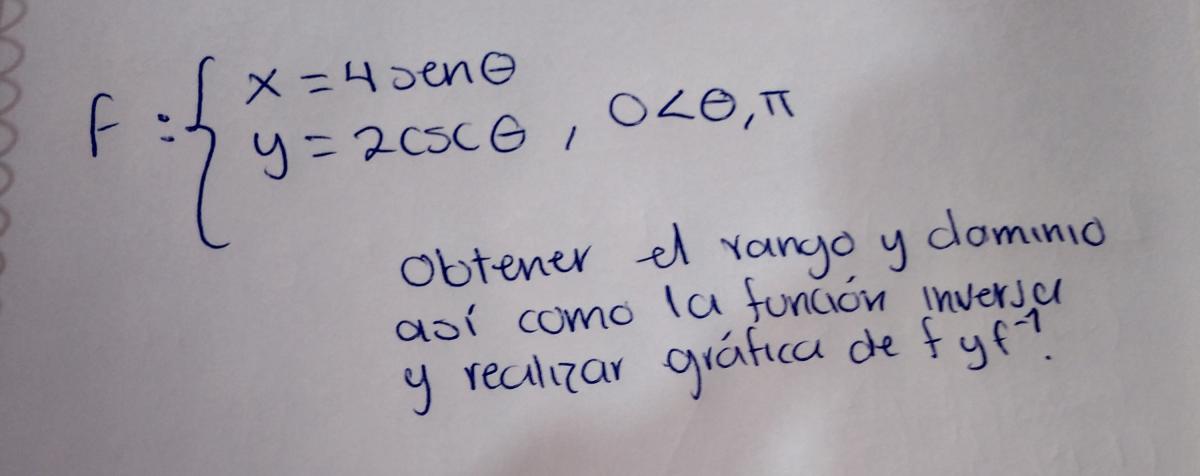 f : { x = 4 sen θ
y = 2 csc θ , 0 < θ, π
Obtener el rango y dominio
así como la función inversa
y realizar gráfica de f y f⁻¹.